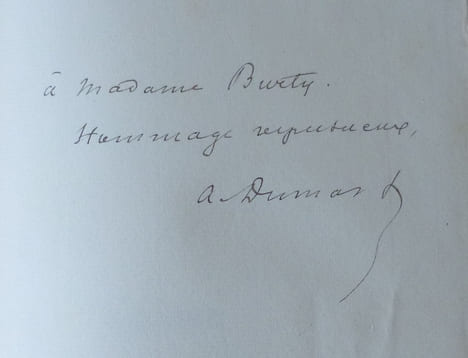 à Madame Burty.
Hommage respectueux,
A. Dumas f